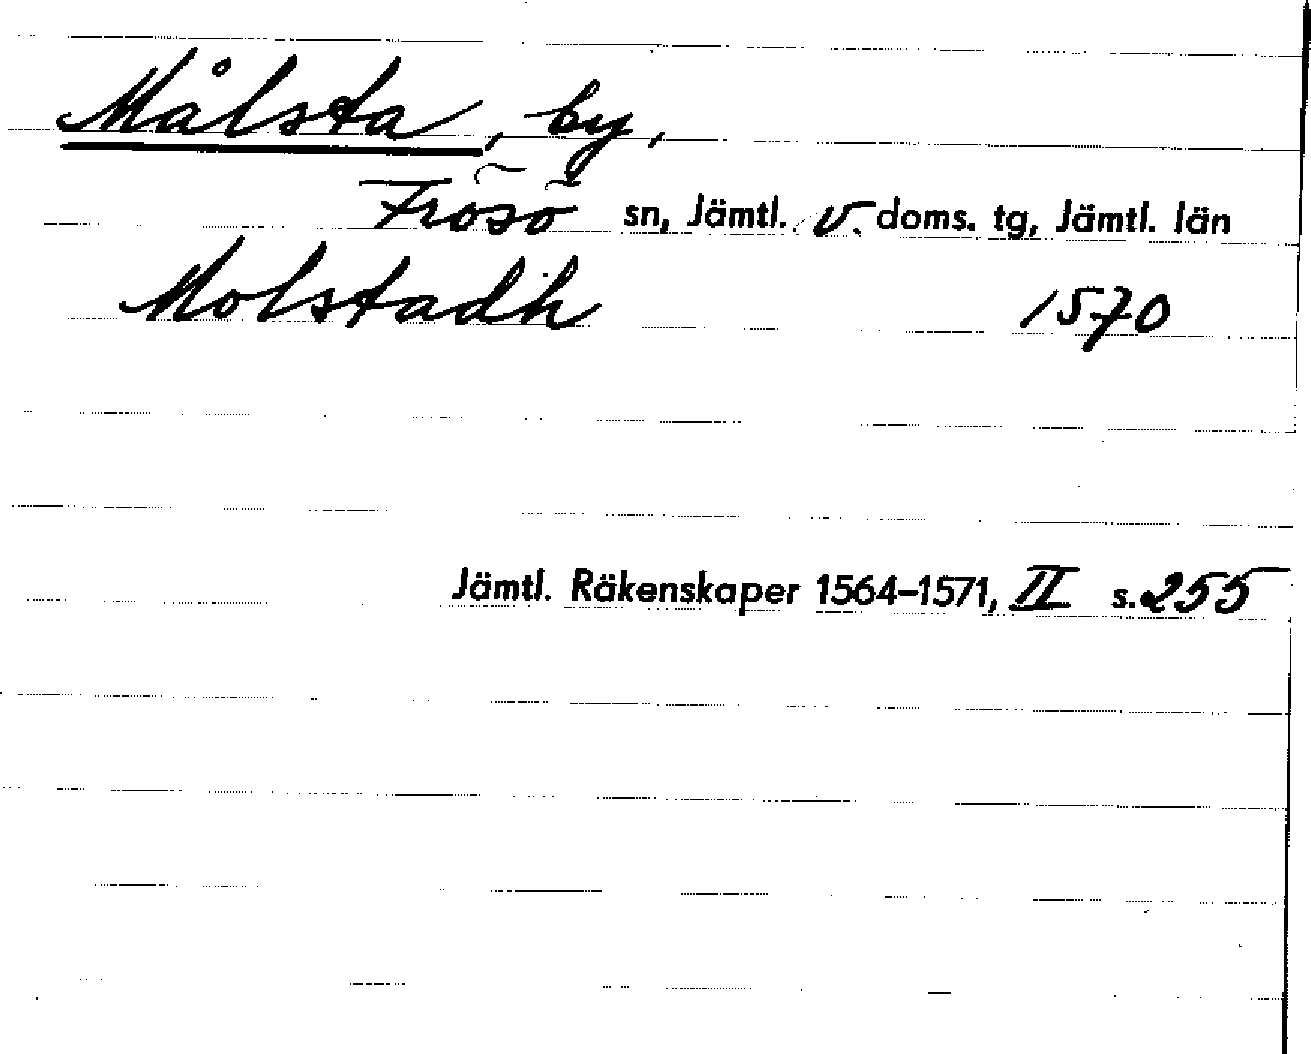 Målsta, by,
Frösö sn, Jämtl. v. doms. tg, Jämtl. län
Molstadh 1570
Jämtl. Räkenskaper 1564–1571, II s. 255